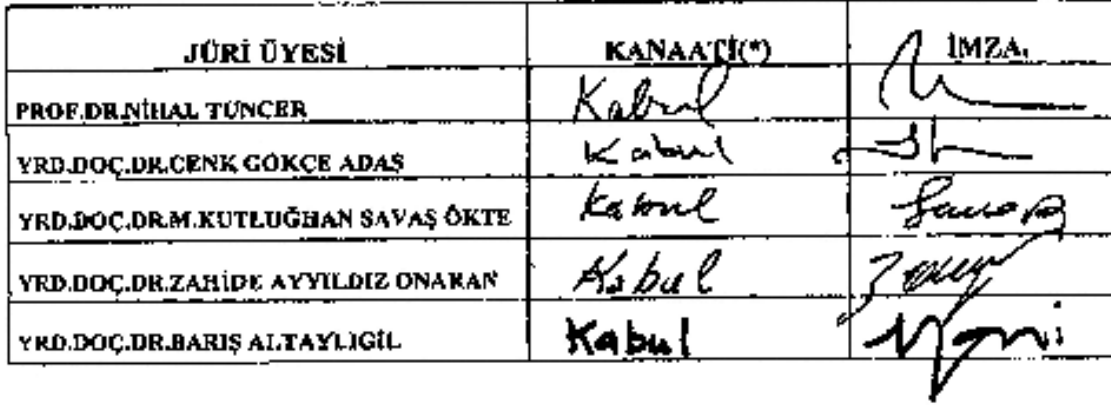 JÜRİ ÜYESİ KANAATİ(*) İMZA
PROF.DR.NİHAL TUNCER Kabul
YRD.DOÇ.DR.CENK GÖKÇE ADAŞ Kabul
YRD.DOÇ.DR.M.KUTLUĞHAN SAVAŞ ÖKTE Kabul
YRD.DOÇ.DR.ZAHİDE AYYILDIZ ONARAN Kabul
YRD.DOÇ.DR.BARIŞ ALTAYLIGİL Kabul